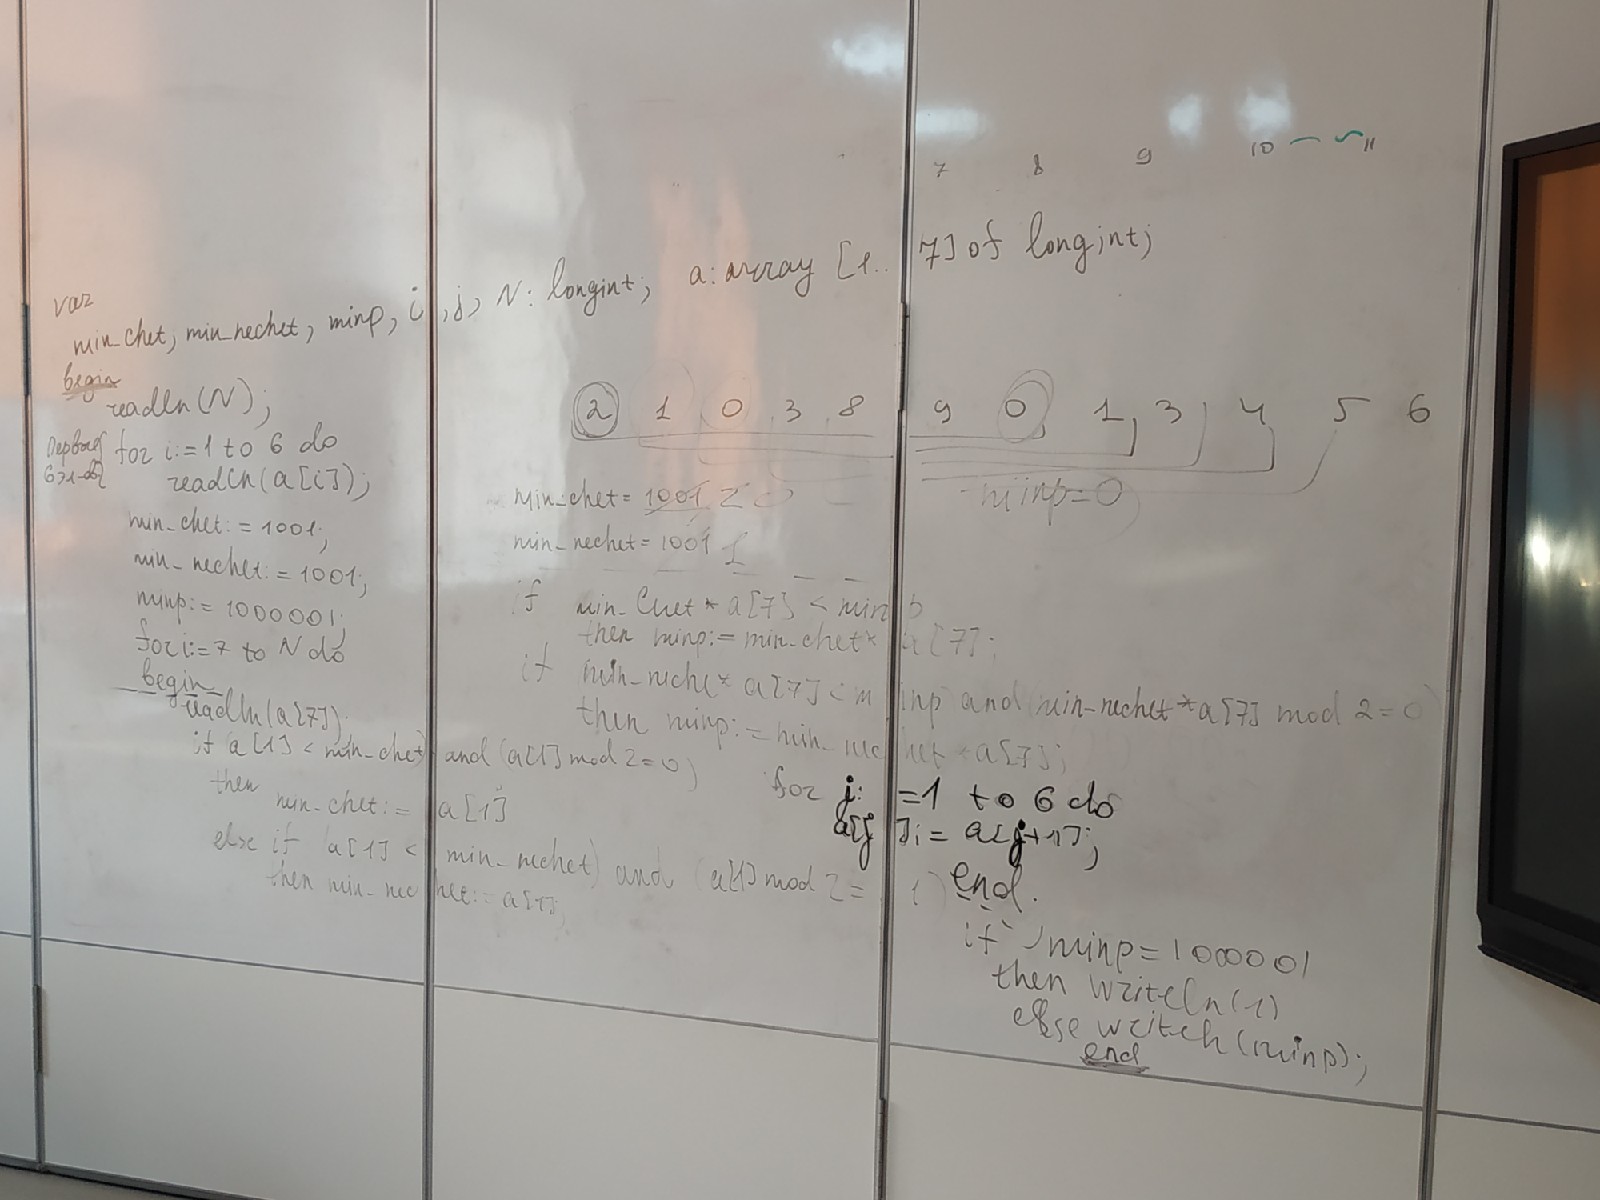 7 8 9 10 11
var
min_chet, min_nechet, minp, i, j, N: longint; a: array [1..7] of longint;
begin
readln(N);
for i:=1 to 6 do
readln(a[i]);
min_chet:=1001;
min_nechet:=1001;
minp:=1000001;
for i:=7 to N do
begin
readln(a[7]);
if (a[1] < min_chet) and (a[1] mod 2=0)
then min_chet:= a[1]
else if (a[1] < min_nechet) and (a[1] mod 2=1)
then min_nechet:=a[1];
2 1 0 3 8 9 0 1 3 4 5 6
min_chet= 1001 2 0
minp=0
min_nechet=1001 1
if min_chet*a[7] < minp
then minp:=min_chet*a[7];
if min_nechet*a[7]<minp and (min_nechet*a[7] mod 2=0)
then minp:=min_nechet*a[7];
for j:=1 to 6 do
a[j]:=a[j+1];
end.
if minp=1000001
then writeln(1)
else writeln(minp);
end